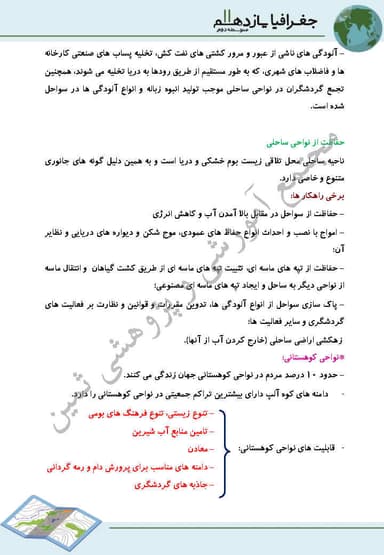 جغرافیا یازدهم
متوسطه دوم
– آلودگی های ناشی از عبور و مرور کشتی های نفت کش، تخلیه پساب های صنعتی کارخانه
ها و فاضلاب های شهری، که به طور مستقیم از طریق رودها به دریا تخلیه می شوند، همچنین
تجمع گردشگران در نواحی ساحلی موجب تولید انبوه زباله و انواع آلودگی ها در سواحل
شده است.
حفاظت از نواحی ساحلی
ناحیه ساحلی محل تلاقی زیست بوم خشکی و دریا است و به همین دلیل گونه های جانوری
متنوع و خاصی دارد.
برخی راهکار ها:
– حفاظت از سواحل در مقابل بالا آمدن آب و کاهش انرژی
– امواج با نصب و احداث انواع حفاظ های عمودی، موج شکن و دیواره های دریایی و نظایر
آن:
– حفاظت از تپه های ماسه ای، تثبیت تپه های ماسه ای از طریق کشت گیاهان و انتقال ماسه
از نواحی دیگر به ساحل و ایجاد تپه های ماسه ای مصنوعی؛
– پاک سازی سواحل از انواع آلودگی ها، تدوین مقررات و قوانین و نظارت بر فعالیت های
گردشگری و سایر فعالیت ها؛
زهکشی اراضی ساحلی (خارج کردن آب از آنها).
*نواحی کوهستانی:
– حدود ۱۰ درصد مردم در نواحی کوهستانی جهان زندگی می کنند.
- دامنه های کوه آلپ دارای بیشترین تراکم جمعیتی در نواحی کوهستانی را دارد.
– تنوع زیستی، تنوع فرهنگ های بومی
– تامین منابع آب شیرین
- قابلیت های نواحی کوهستانی:
– معادن
– دامنه های مناسب برای پرورش دام و رمه گردانی
– جاذبه های گردشگری
مجتمع آموزشی پژوهشی ثمین